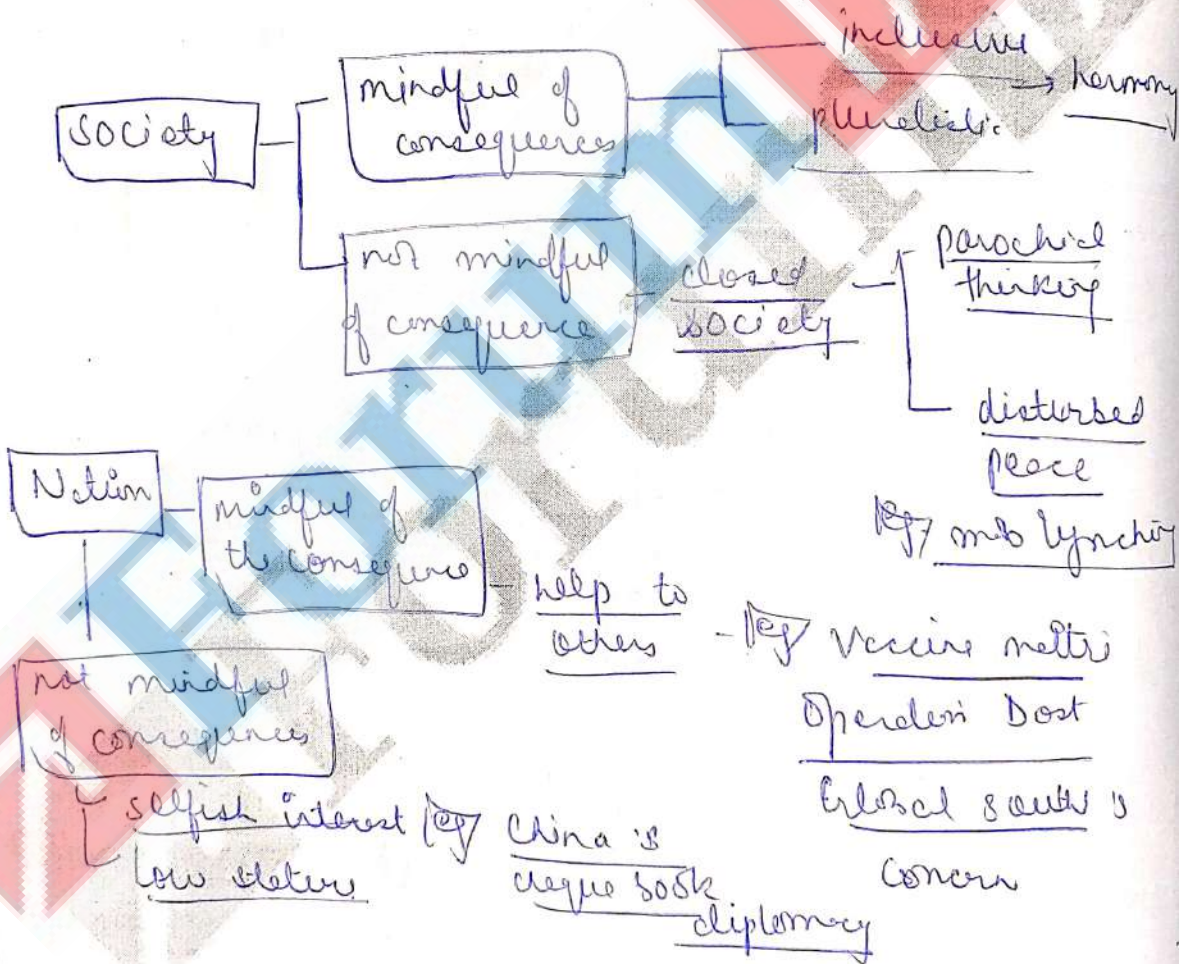 society
mindful of
consequences
inclusive
pluralistic
→ harmony
not mindful
of consequence
closed
society
parochial
thinking
disturbed
peace
eg mob lynching
Nation
mindful of
the consequence
help to
others
eg Vaccine maitri
Operation Dost
Global south's
concern
not mindful
of consequences
selfish interest eg China's
cheque book
diplomacy
low stature
Forum